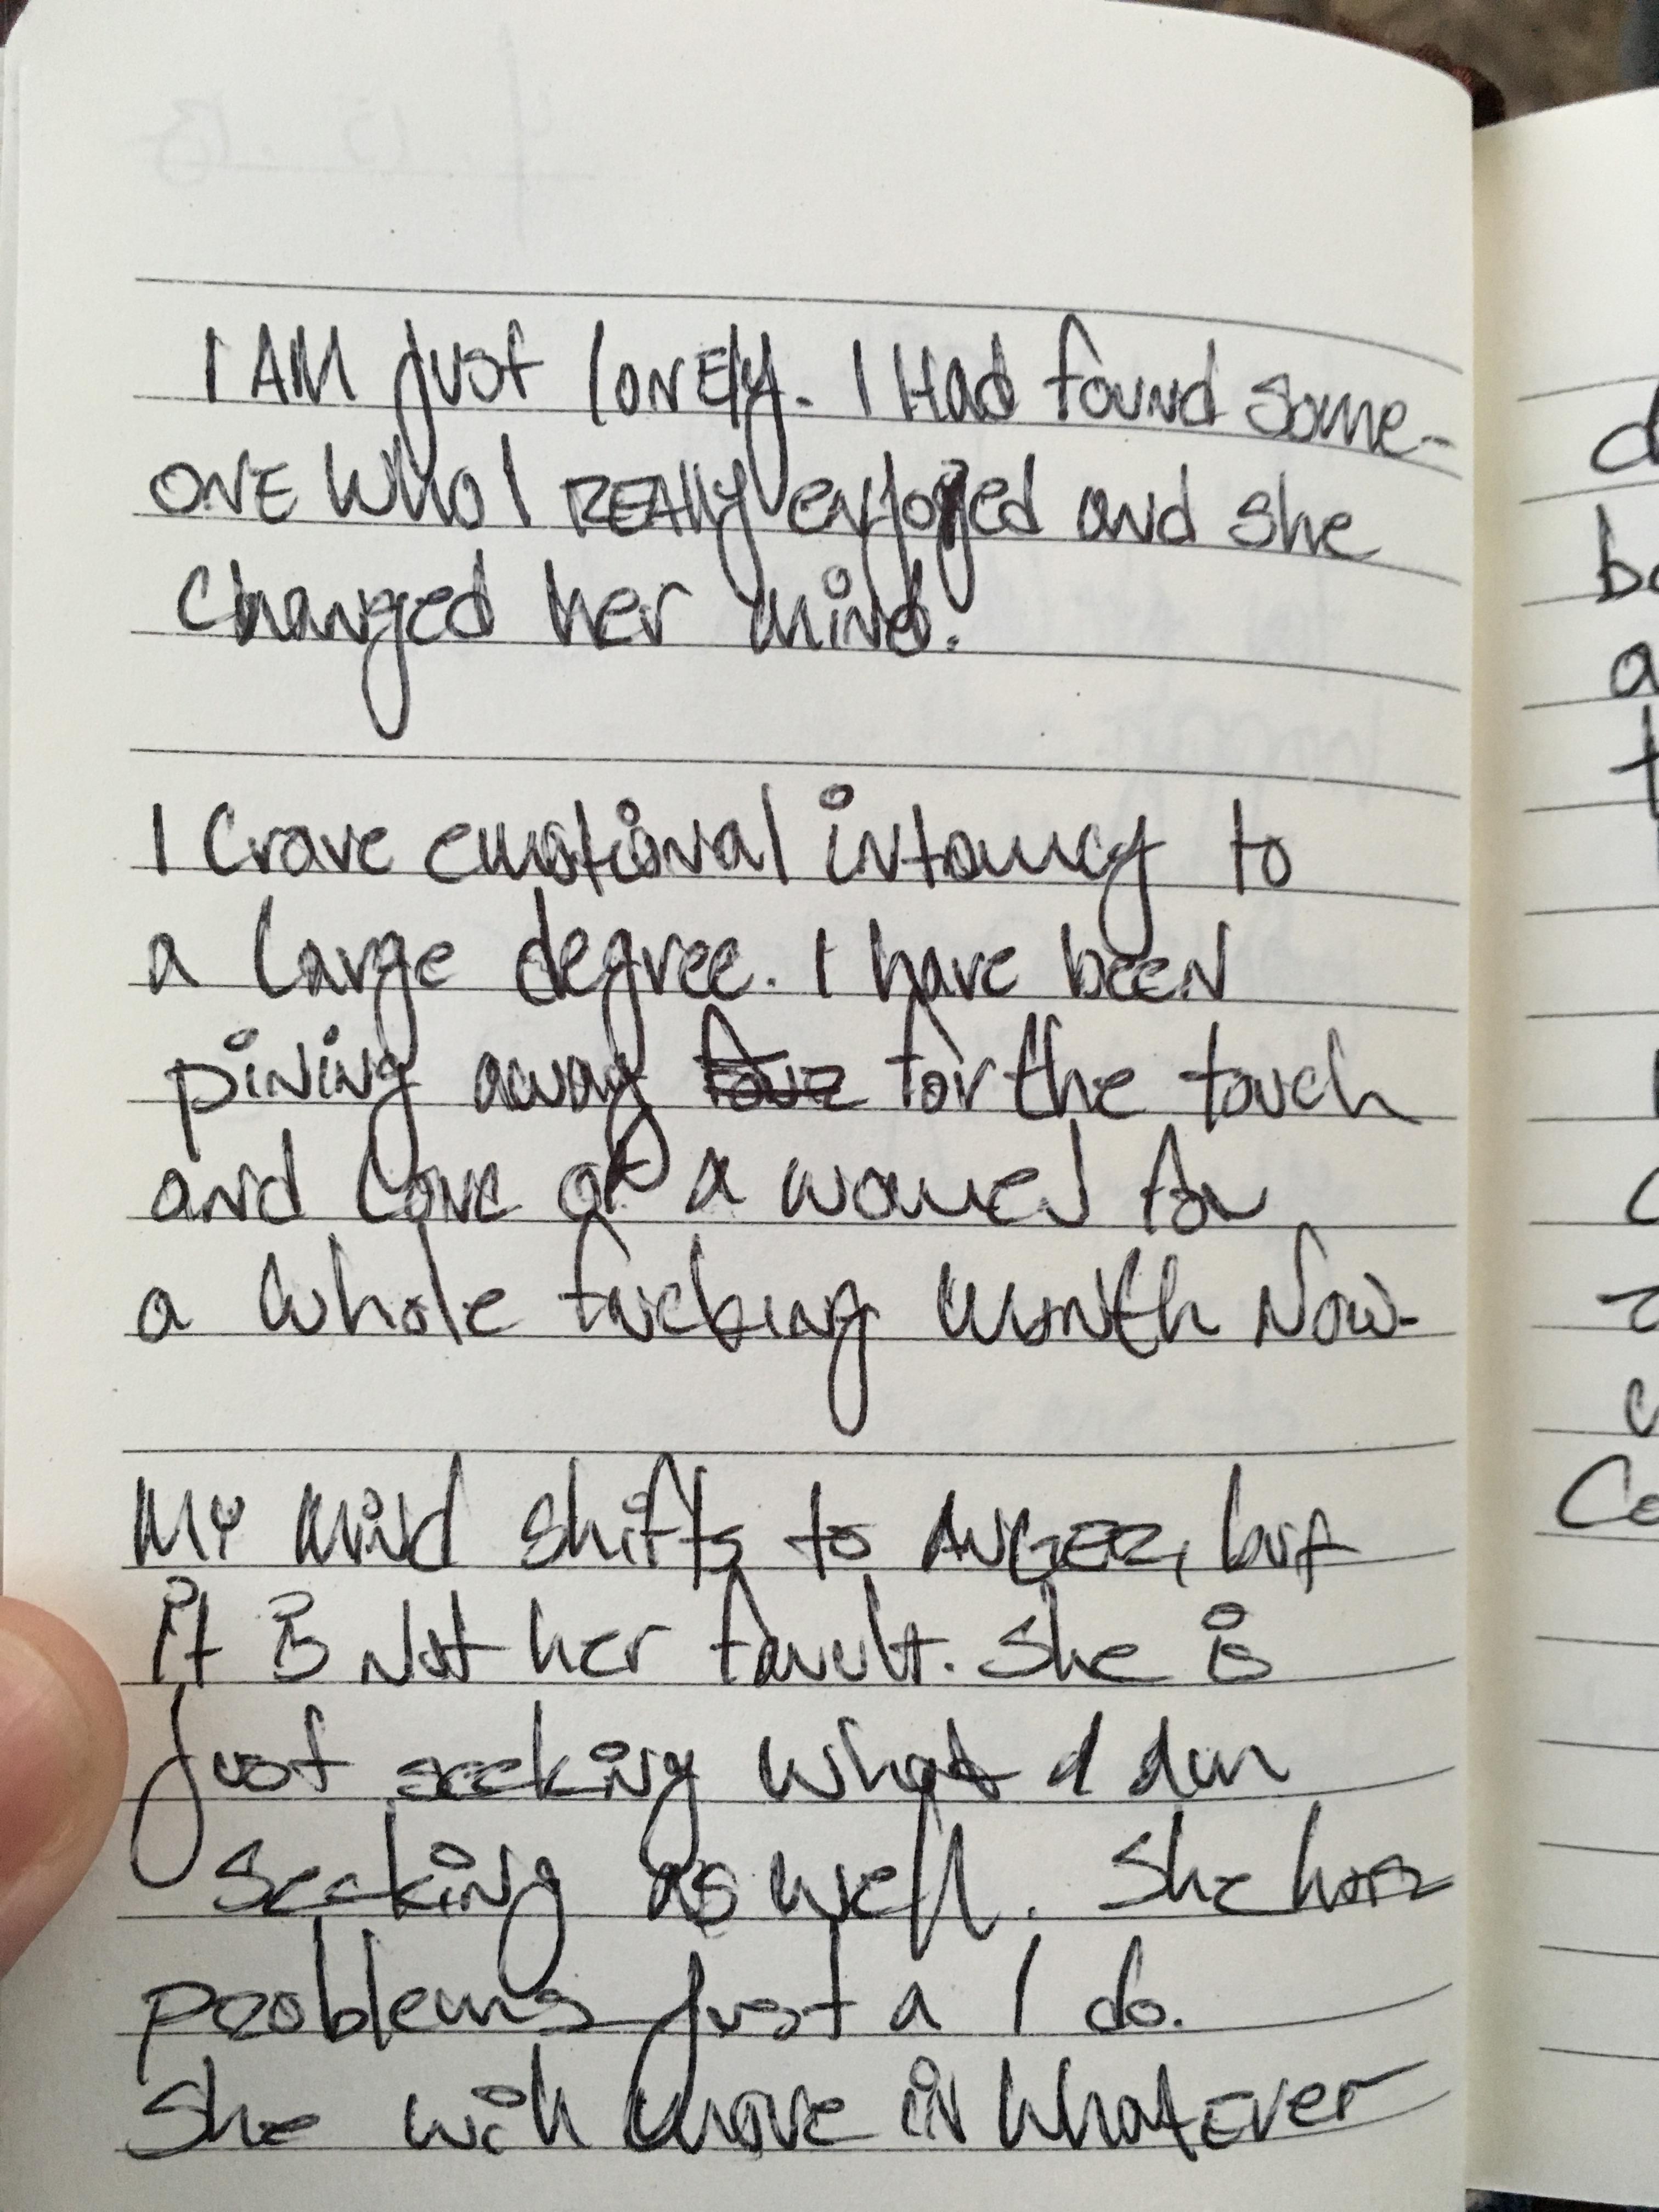 I AM just lonEly. I Had found some-
ONE Who I REAlly enjoyed and she
changed her mind.
I Crave emotional intamcy to
a large degree. I have been
pining away for the touch
and love of a women for
a whole fucking month Now.
My mind shifts to ANGER, but
it is Not her fault. She is
just seeking what I am
seeking as well. She has
problems just a I do.
She will move in whatEver
d
b
a
t
Co